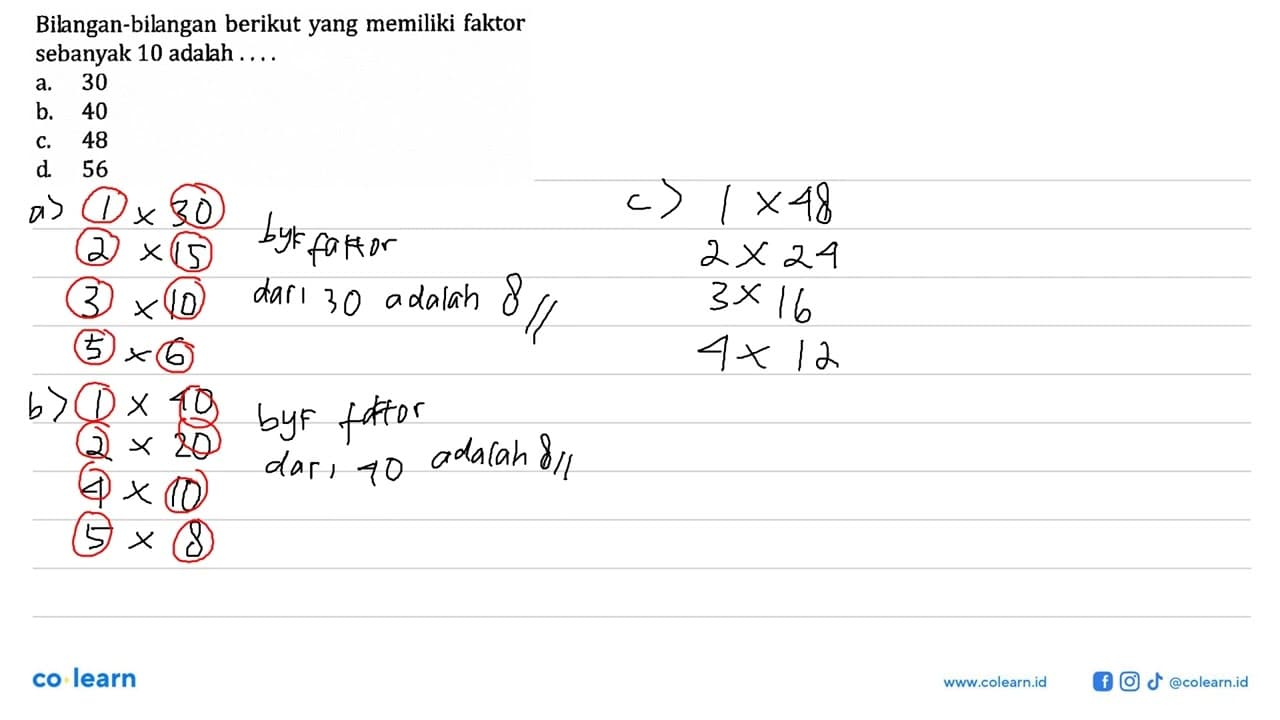 Bilangan-bilangan berikut yang memiliki faktor
sebanyak 10 adalah ....
a. 30
b. 40
c. 48
d. 56
a) 1 x 30
2 x 15
3 x 10
5 x 6
byk faktor
dari 30 adalah 8//
b) 1 x 40
2 x 20
4 x 10
5 x 8
byk faktor
dari 40 adalah 8//
c) 1 x 48
2 x 24
3 x 16
4 x 12
co learn
www.colearn.id
@colearn.id